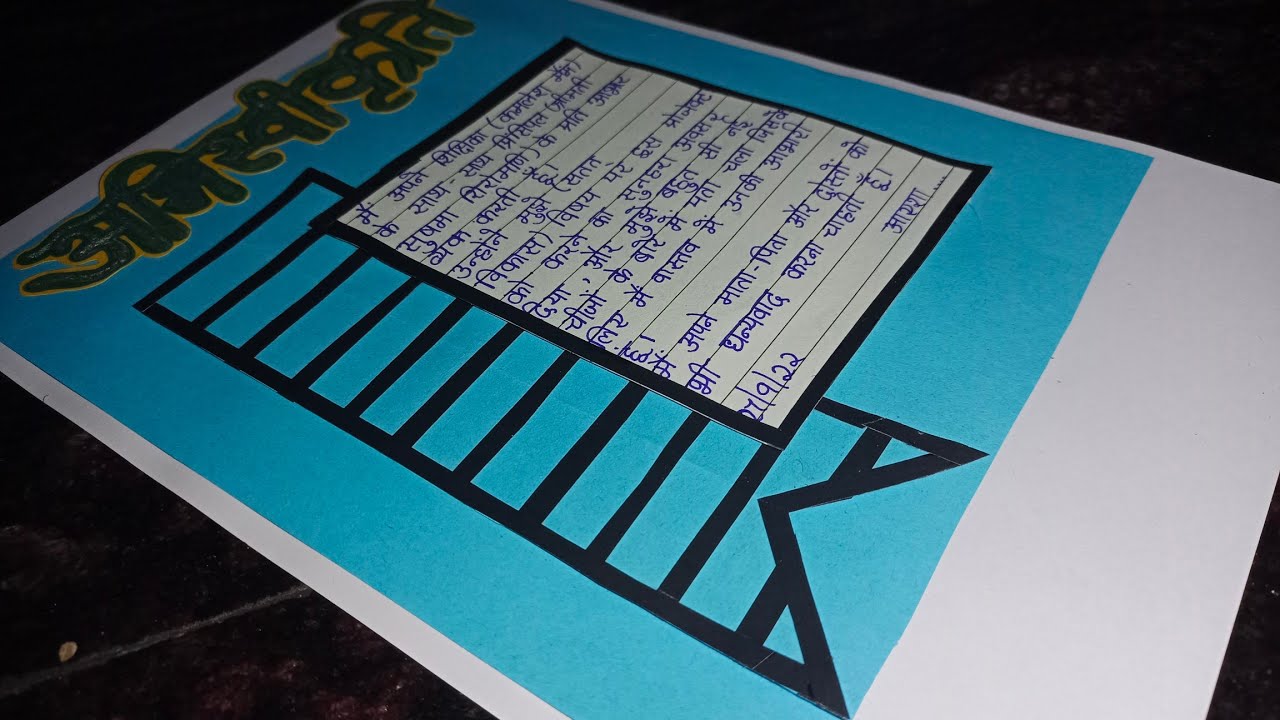 अभिस्वीकृति
मैं अपने शिक्षिका (कमलेश मैम)
के साथ-साथ प्रिंसिपल (श्रीमती
सुषमा शिरोमणि) के प्रति आभार
व्यक्त करती हूँ।
उन्होंने मुझे (सतत
विकास) विषय पर इस प्रोजेक्ट
को करने का सुनहरा अवसर
दिया, और मुझे बहुत सी नई
चीजों के बारे में पता चला जिसके
लिए मैं वास्तव में उनकी आभारी
हूँ।
मैं अपने माता-पिता और दोस्तों को
भी धन्यवाद करना चाहती हूँ।
आस्था ....
/9/22